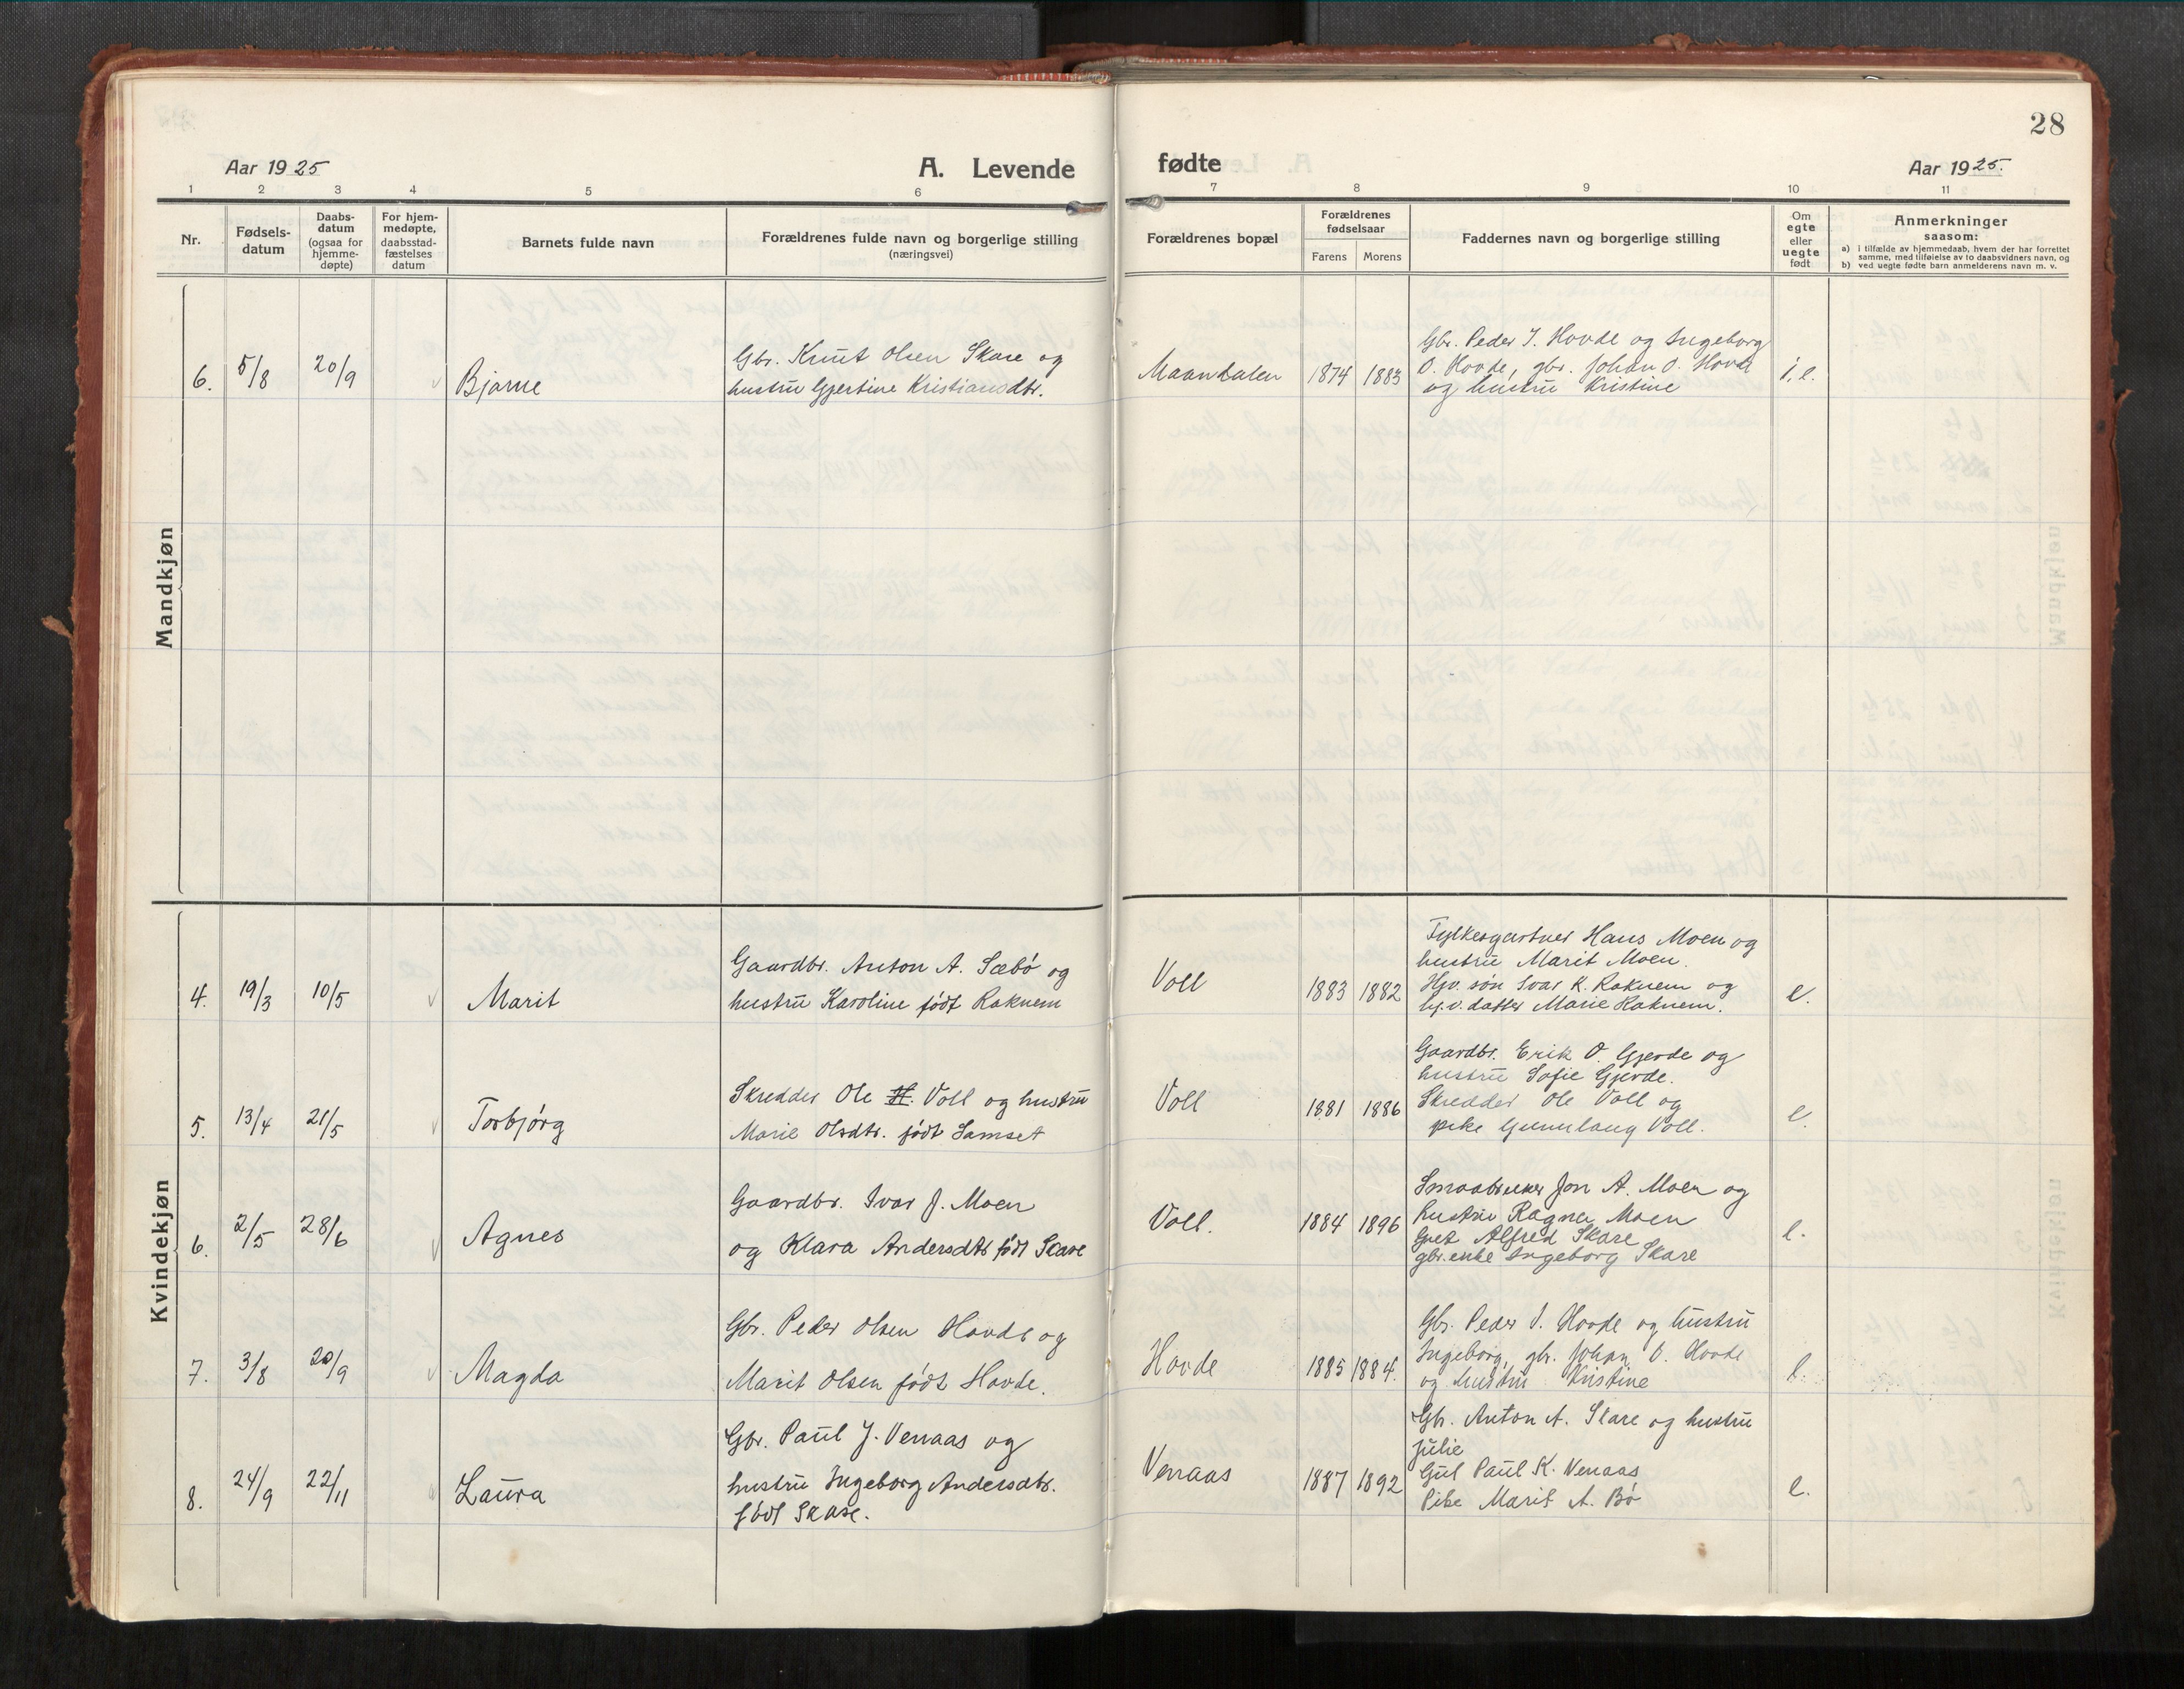 28
Aar 1925
A. Levende
fødte
Aar 1925.
1 2 3 4 5 6 7 8 9 10 11
Nr.
Fødsels-
datum
Daabs-
datum
(ogsaa for
hjemme-
døpte)
For hjem-
medøpte,
daabsstad-
fæstelses
datum
Barnets fulde navn
Forældrenes fulde navn og borgerlige stilling
(næringsvei)
Forældrenes bopæl
Forældrenes
fødselsaar
Farens Morens
Faddernes navn og borgerlige stilling
Om
egte
eller
uegte
født
Anmerkninger
saasom:
a) i tilfælde av hjemmedaab, hvem der har forrettet
samme, med tilføielse av to daabsvidners navn, og
b) ved uegte fødte barn anmelderens navn m. v.
Mandkjøn
6. 5/8 20/9 Bjarne
Gbr. Knut Olsen Skare og
hustru Gjertine Kristiansdtr.
Maandalen 1874 1883
Gbr. Peder I. Hovde og Ingeborg
O. Hovde, gbr. Johan O. Hovde
og hustru Kristine
Kvindekjøn
4. 19/3 10/5 Marit
Gaardbr. Anton A. Sæbö og
hustru Karoline födt Raknem
Voll 1883 1882
Fylkesgartner Hans Moen og
hustru Marit Moen.
Hjv. sön Ivar K. Raknem og
hj.v. datter Marie Raknem.
e.
5. 13/4 21/5 Torbjørg
Skredder Ole H. Voll og hustru
Marie Olsdtr. födt Samset
Voll 1881 1886
Gaardbr. Erik O. Gjerde og
hustru Sofie Gjerde.
Skredder Ole Voll og
pike Gunnlaug Voll.
e.
6. 2/5 28/6 Agnes
Gaardbr. Ivar J. Moen
og Klara Andersdtr födt Skare
Voll. 1884 1896
Smaabruker Jon A. Moen og
hustru Ragna Moen
Alfred Skare
gbr.enke Ingeborg Skare
e.
7. 3/8 20/9 Magda
Gbr. Peder Olsen Hovde og
Marit Olsen födt Hovde.
Hovde 1885 1884.
Gbr. Peder I. Hovde og hustru
Ingeborg, gbr. Johan O. Hovde
og hustru Kristine
e.
8. 24/9 22/11 Laura
Gbr. Paul J. Venaas og
hustru Ingeborg Andersdtr.
födt Skare.
Venaas 1887 1892
Gbr. Anton A. Skare og hustru
Julie
Gut Paul K. Venaas
Pike Marit A. Bö
e.